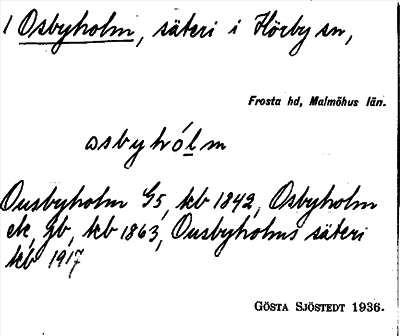 1 Osbyholm, säteri i Hörby sn,
Frosta hd, Malmöhus län.
osbyhólm
Ousbyholm G5, kb 1842, Osbyholm
ek, Gb, kb 1863, Ousbyholms säteri
kb 1917
GÖSTA SJÖSTEDT 1936.